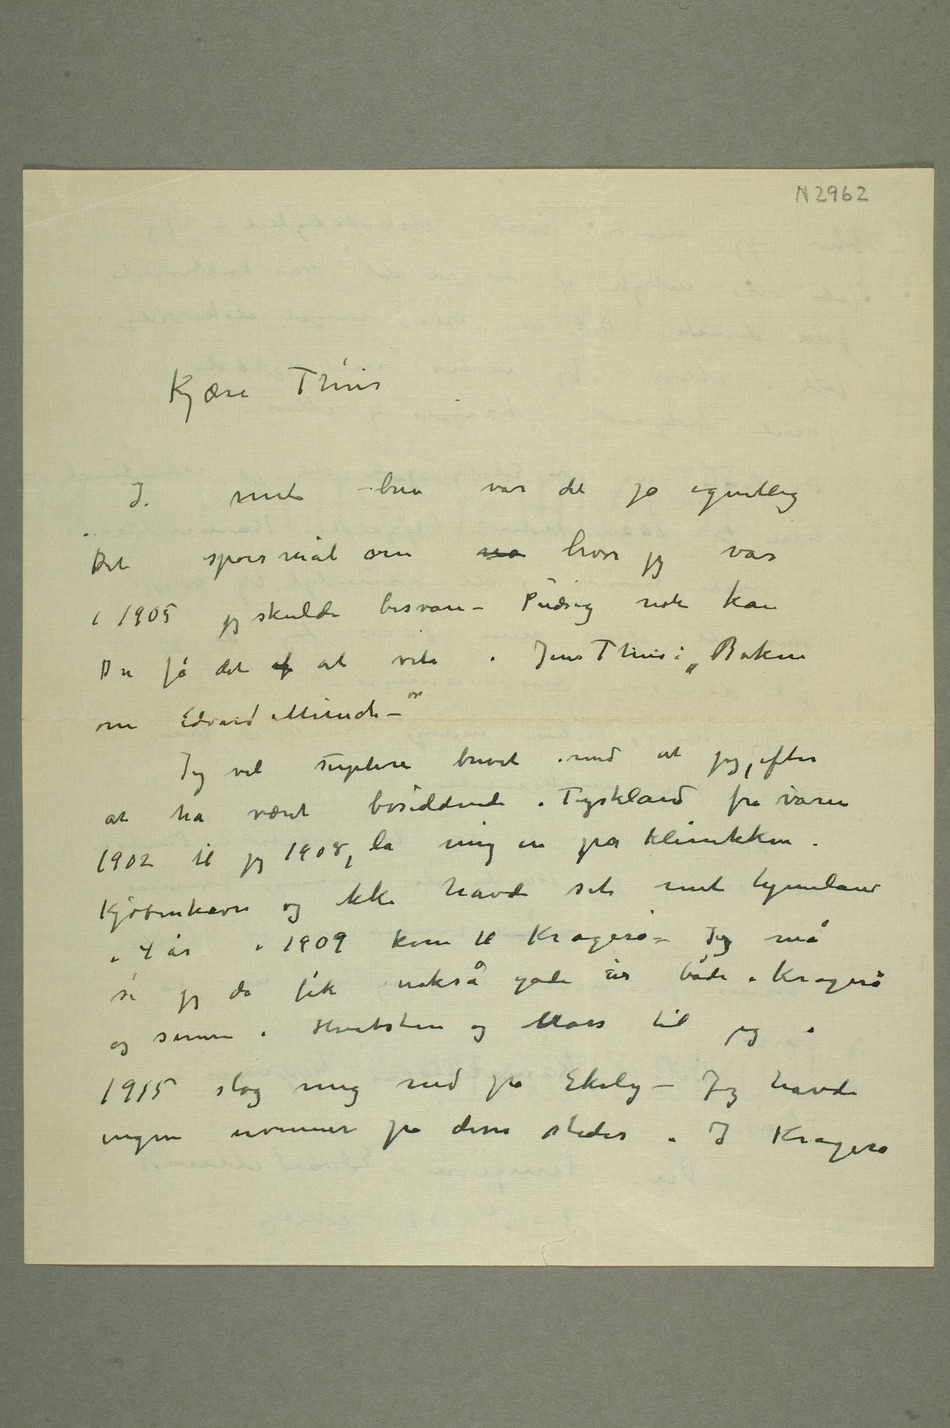 N 2962
Kjære Thiis
I mit brev var det jo egentlig
Det spørsmål om hvor jeg var
i 1905 jeg skulde besvare – Pudsig nok kan
Du få det at vite i Jens Thiis: „Boken
om Edvard Munch –“
Jeg vil suplere brevet med at jeg, efter
at ha været bosiddende i Tyskland fra våren
1902 til jeg 1908, la mig in på klinikken i
Kjøbenhavn og ikke havde set mit hjemland
i 4 år i 1909 kom til Kragerø – Jeg må
si jeg da fik nokså gode år både i Kragerø
og senere i Hvitsten og Moss til jeg i
1915 slog mig ned på Ekely – Jeg havde
ingen uvenner på disse steder. I Kragerø